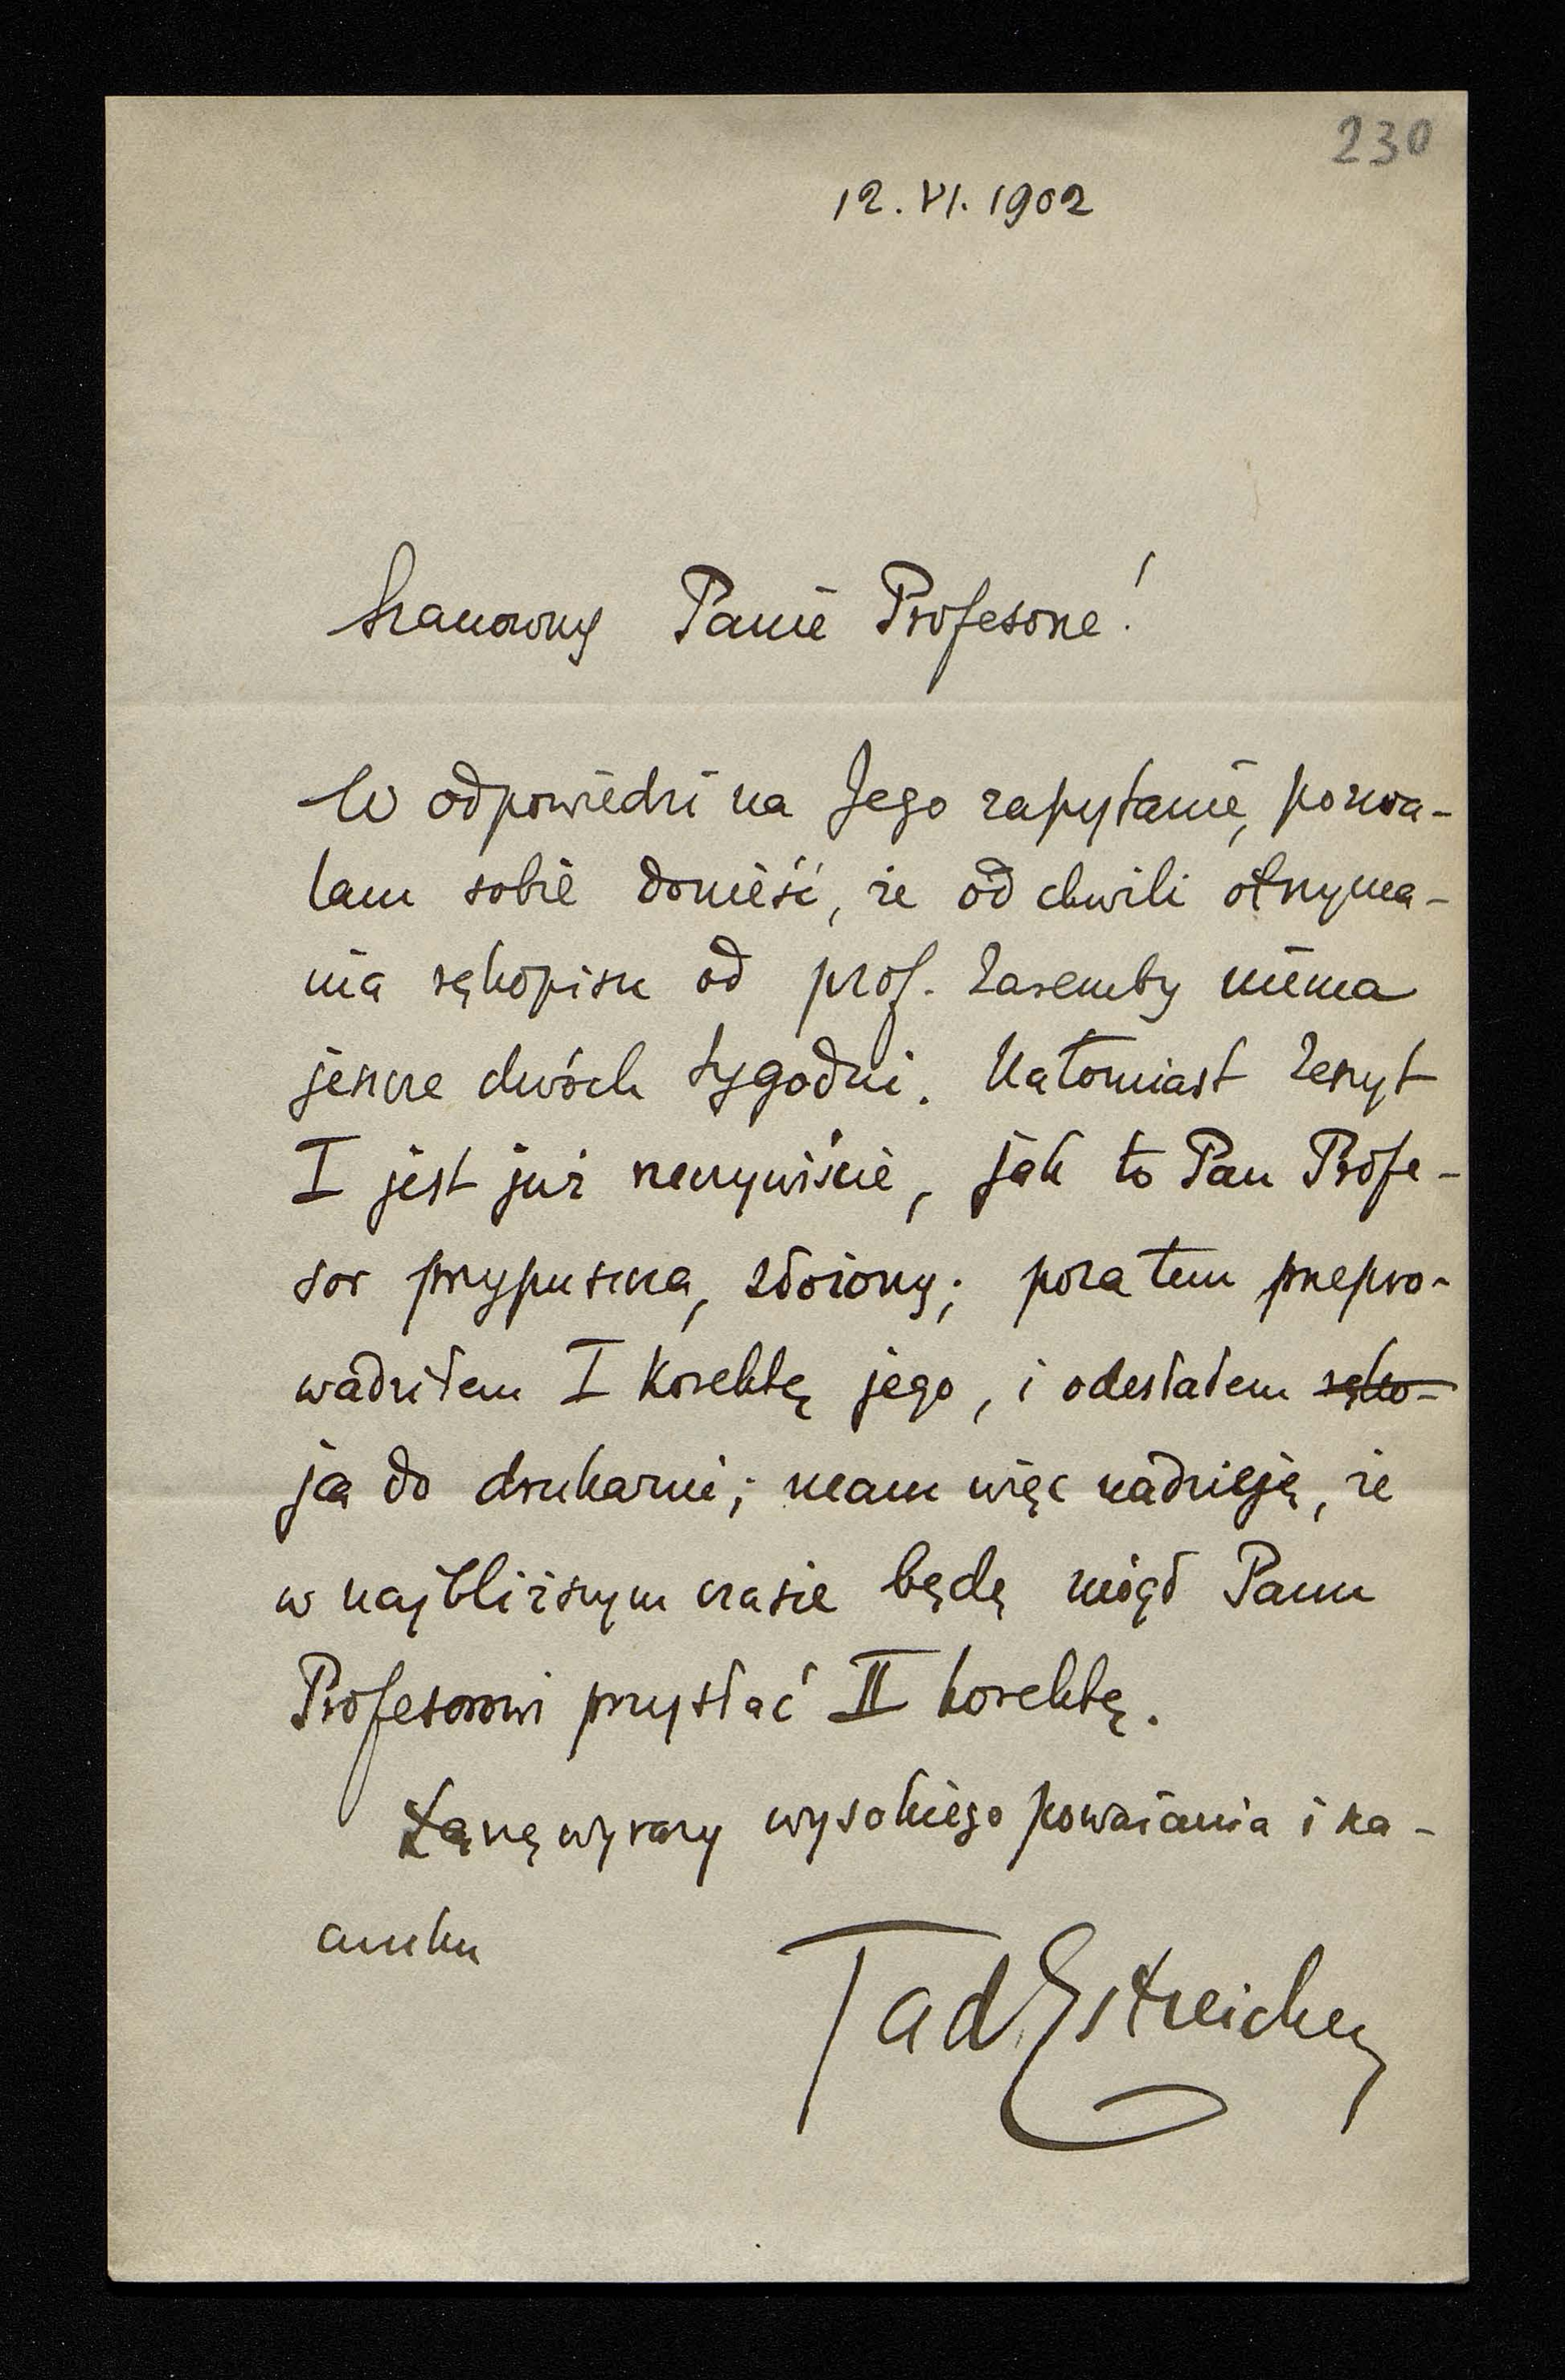 230
12.VI.1902
Szanowny Panie Profesorze!
W odpowiedzi na Jego zapytanie, pozwa-
lam sobie donieść, że od chwili otrzyma-
nia rękopisu od prof. Zaremby niema
jeszcze dwóch tygodni. Natomiast zeszyt
I jest już rzeczywiście, jak to Pan Profe-
sor przypuszcza, złożony; poza tem przepro-
wadziłem I korektę jego, i odesłałem ręko-
ją do drukarni; mam więc nadzieję, że
w najbliższym czasie będę mógł Panu
Profesorowi przysłać II korektę.
Łączę wyrazy wysokiego poważania i sza-
cunku
Tad. Estreicher